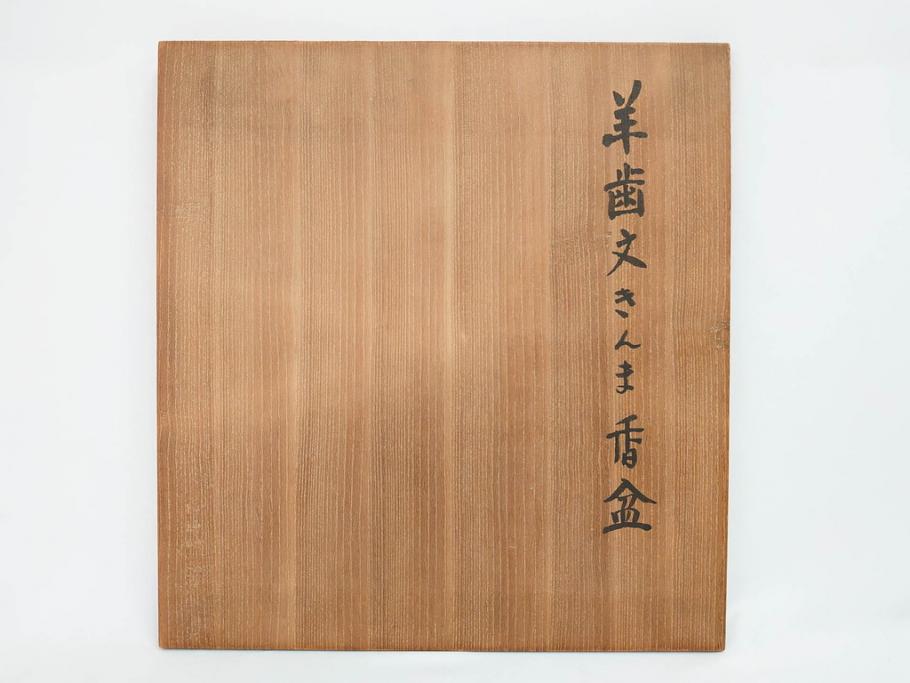 羊歯文きんま香盆